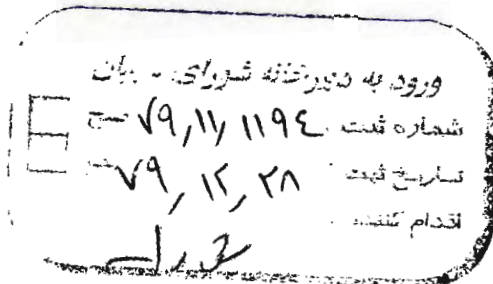 ورود به دبیرخانه شورای
شماره ثبت ۷۹,۱۱,۱۱۹۴
تاریخ ثبت ۷۹,۱۲,۲۸
اقدام کننده